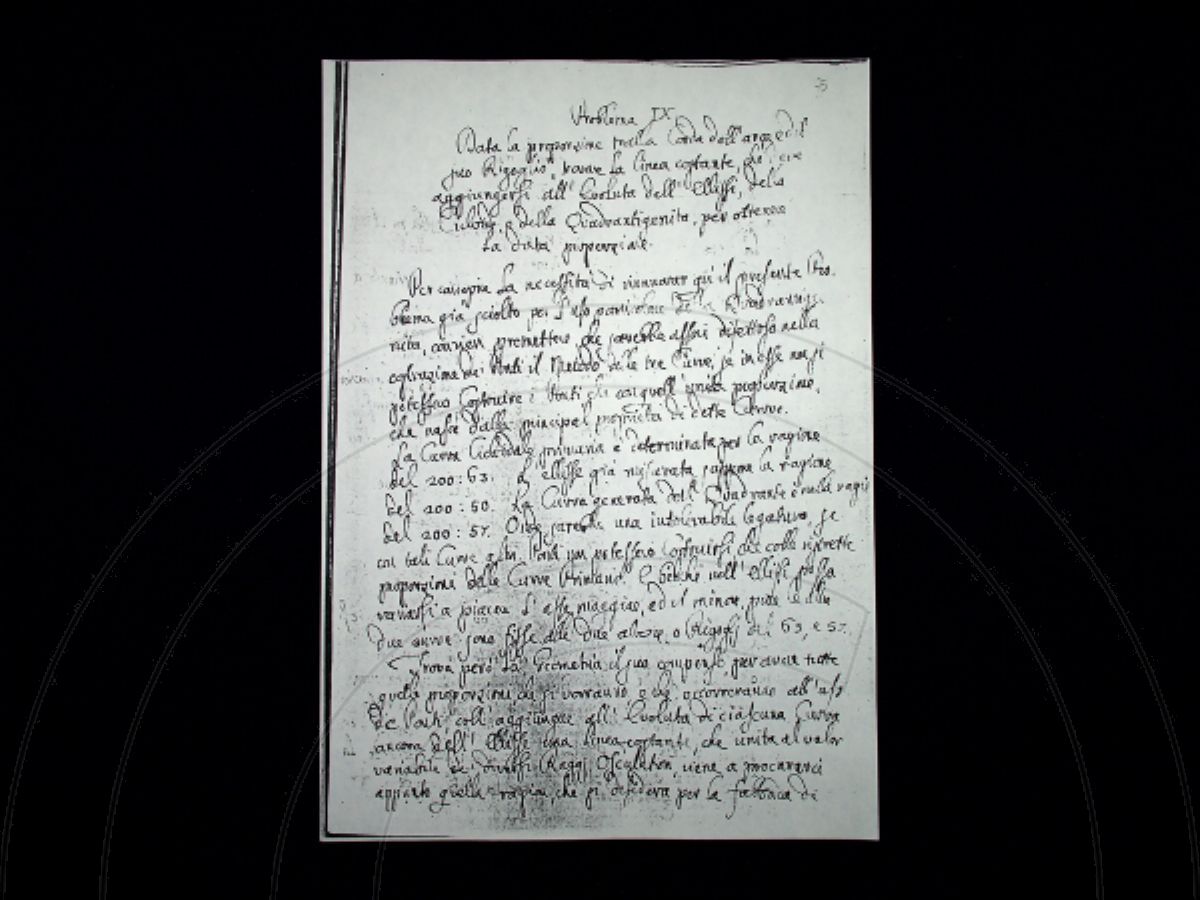 35
Problema IX.
Data la proporzione tralla Corda dell'arco ed il
suo Rigoglio, trovare la linea costante, che deve
aggiungersi all'Evoluta dell'Ellissi, della
e della Quadrantigenita, per ottenere
la data proporzione.
la necessità di rinnovar qui il presente Pro-
blema già sciolto per l'uso particolare della Quadrantige-
nita, convien premettere, che sarebbe assai difettoso nella
costruzione dei Ponti il Metodo delle tre Curve, se in esse non si
potessero Costruire i Ponti che con quell'unica proporzione,
che nasce dalla principal proprietà di dette Curve.
La Curva Cicloidale primaria è determinata per la ragione
del 200:63. L'ellisse già misurata la ragione
del 200:50. La Curva generata dall' Quadrante è nella ragio
del 200:57. Onde sarebbe una intolerabile legatura, se
con tali Curve altri Ponti non potessero Costruirsi, che colle ristrette
proporzioni delle Curve Primarie. E benchè nell'Ellissi possa
variarsi a piacere l'asse maggiore, ed il minore, pure
due curve sono fisse alle due altezze, o Rigogli del 63, e 57.
Trova però la Geometria il suo compenso per avere tutte
quelle proporzioni che si vorranno, o che occorreranno all'uso
de Ponti coll'aggiungere all'Evoluta di ciascuna Curva
ancora dell'Ellisse una linea costante, che unita al valor
variabile de' diversi Raggi Osculatori, viene a procurarci
appunto quella ragione, che si desidera per la fabbrica di